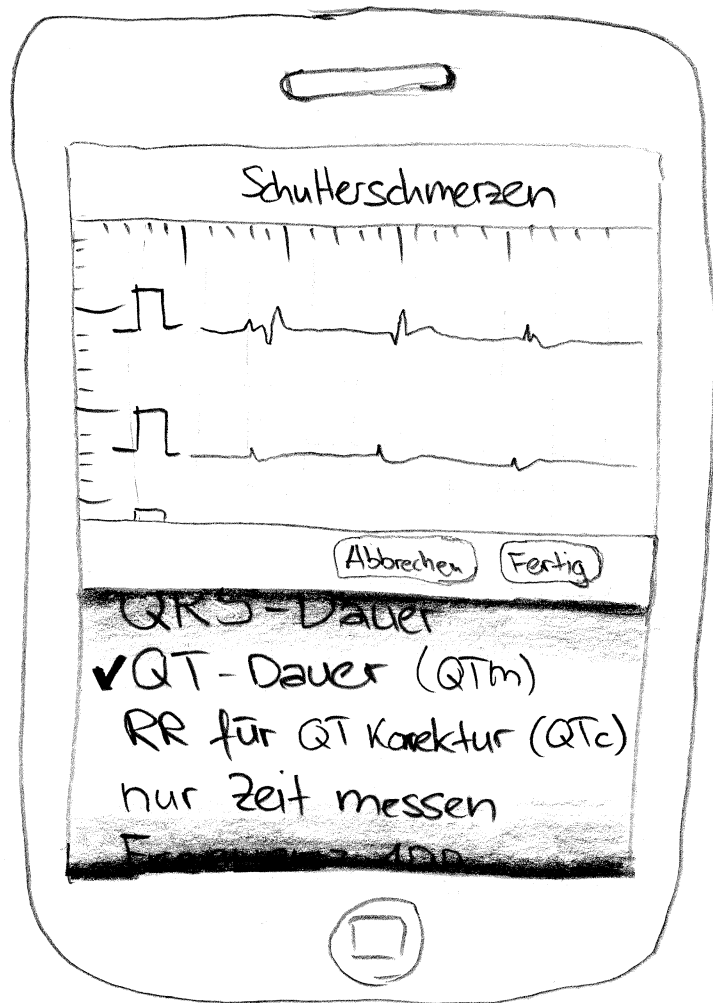 Schulterschmerzen
Abbrechen
Fertig
QRS-Dauer
✓QT-Dauer (QTm)
RR für QT Korektur (QTc)
nur Zeit messen